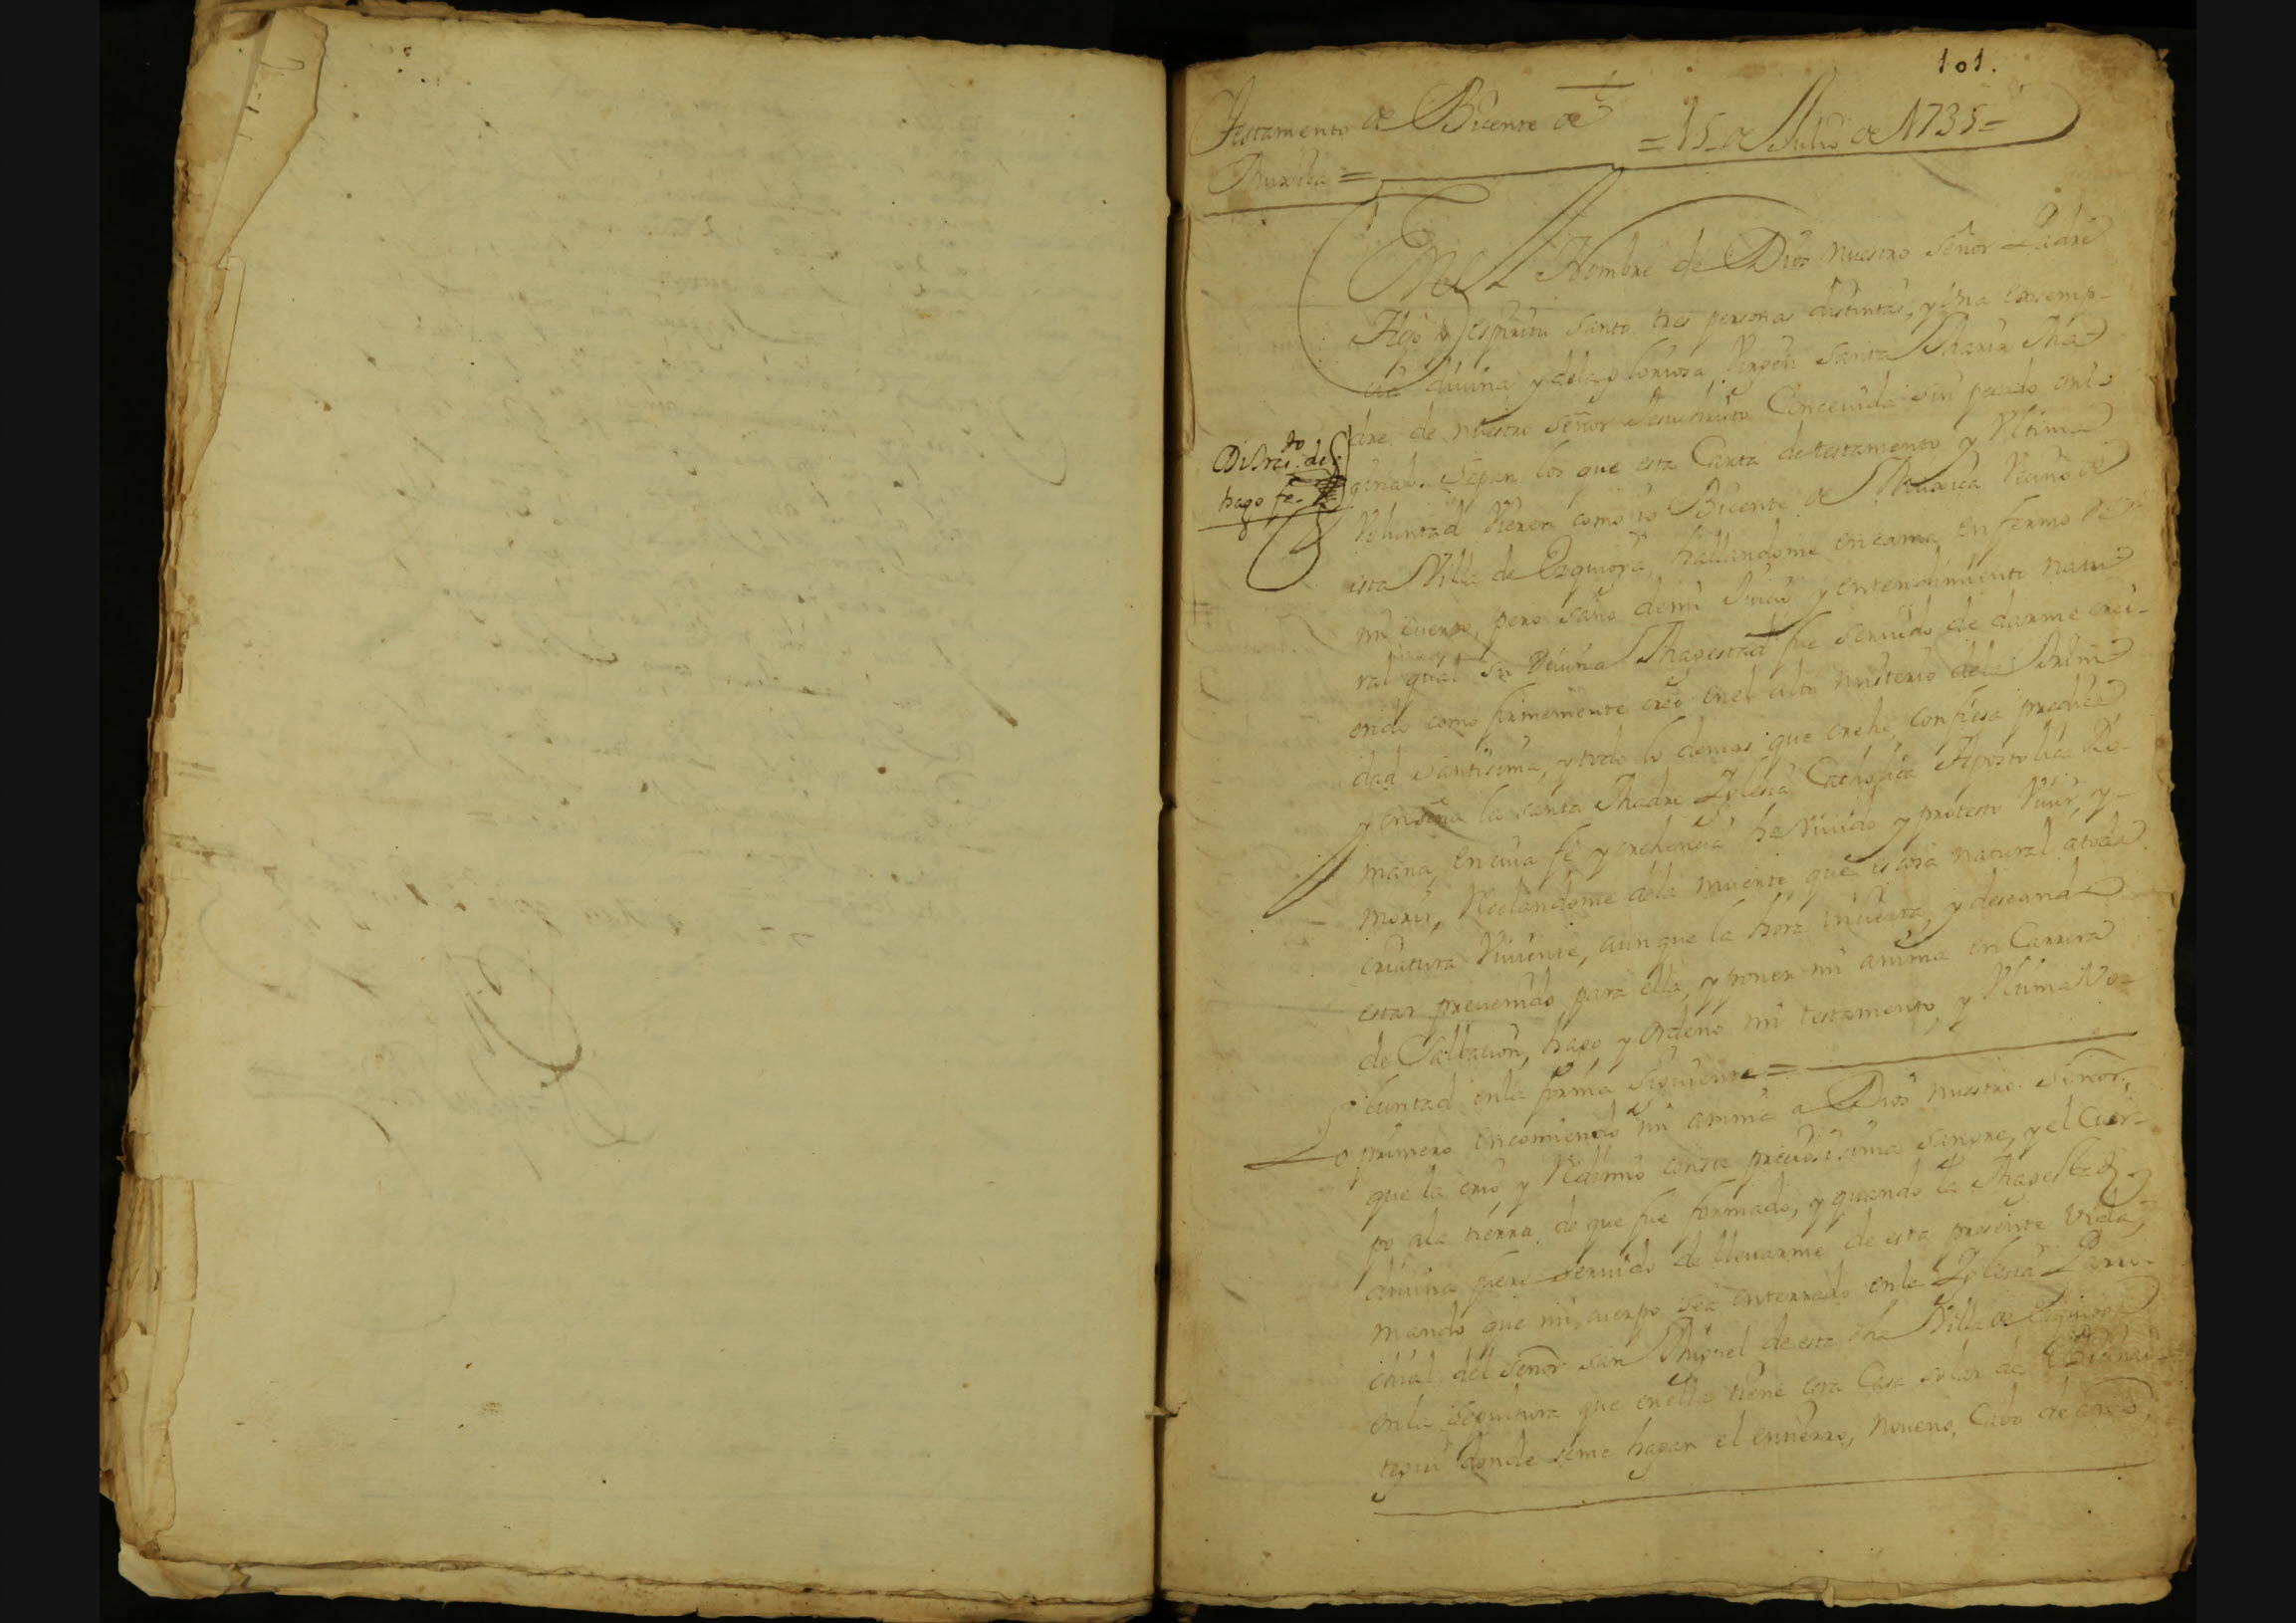 101.
Testamento de Bicente de
Muxica =
= 15 de Julio de 1735 =
En el Nombre de Dios nuestro señor Padre
Hijo y espiritu santo tres personas distintas, y una
divina y dela gloriosa Virgen santa Maria Ma
dre de nuestro señor Jesuchristo Conceuida sin pecado ori=
ginal. Sepan los que esta Carta de testamento y Vltima
Voluntad Vieren como io Bicente de Muxica Vecino de
esta Villa de Ezquioga hallandome en cama enfermo de
mi cuerpo, pero sano de mi Juicio y entendimiento natu
ral qual su Divina Magestad fue seruido de darme crei-
endo como firmemente creo en el alto misterio dela Trini
dad santisima, y todo lo demas que crehe, confiesa predica
y enseña la santa Madre Iglesia Catholica Apostolica Ro-
mana, en cuia fe y crehencia he Viuido y protesto Viuir, y-
morir, Recelandome dela muerte que es cosa natural atoda
criatura Viuiente, aunque la hora incierta, y deseando
estar preuenido para ella, y poner mi anima en Carrera
de Salbacion, hago y ordeno mi testamento, y Vltima Vo-
luntad en la forma siguiente =
Lo primero encomiendo mi anima a Dios nuestro señor,
que la crio y Redimio con su preciosisima sangre, y el Cuer-
po ala tierra de que fue formado, y quando la Magestad
diuina fuere seruido de lleuarme de esta presente vida,
mando que mi cuerpo sea enterrado en la Iglesia Parro-
chial del señor san Miguel de esta dha Villa de Ezquioga
en la sepultura que en ella tiene esta Casa solar de
tegui donde se me hagan el entierro, noueno, Cabo de año,
Di tras.do de
hago fe.